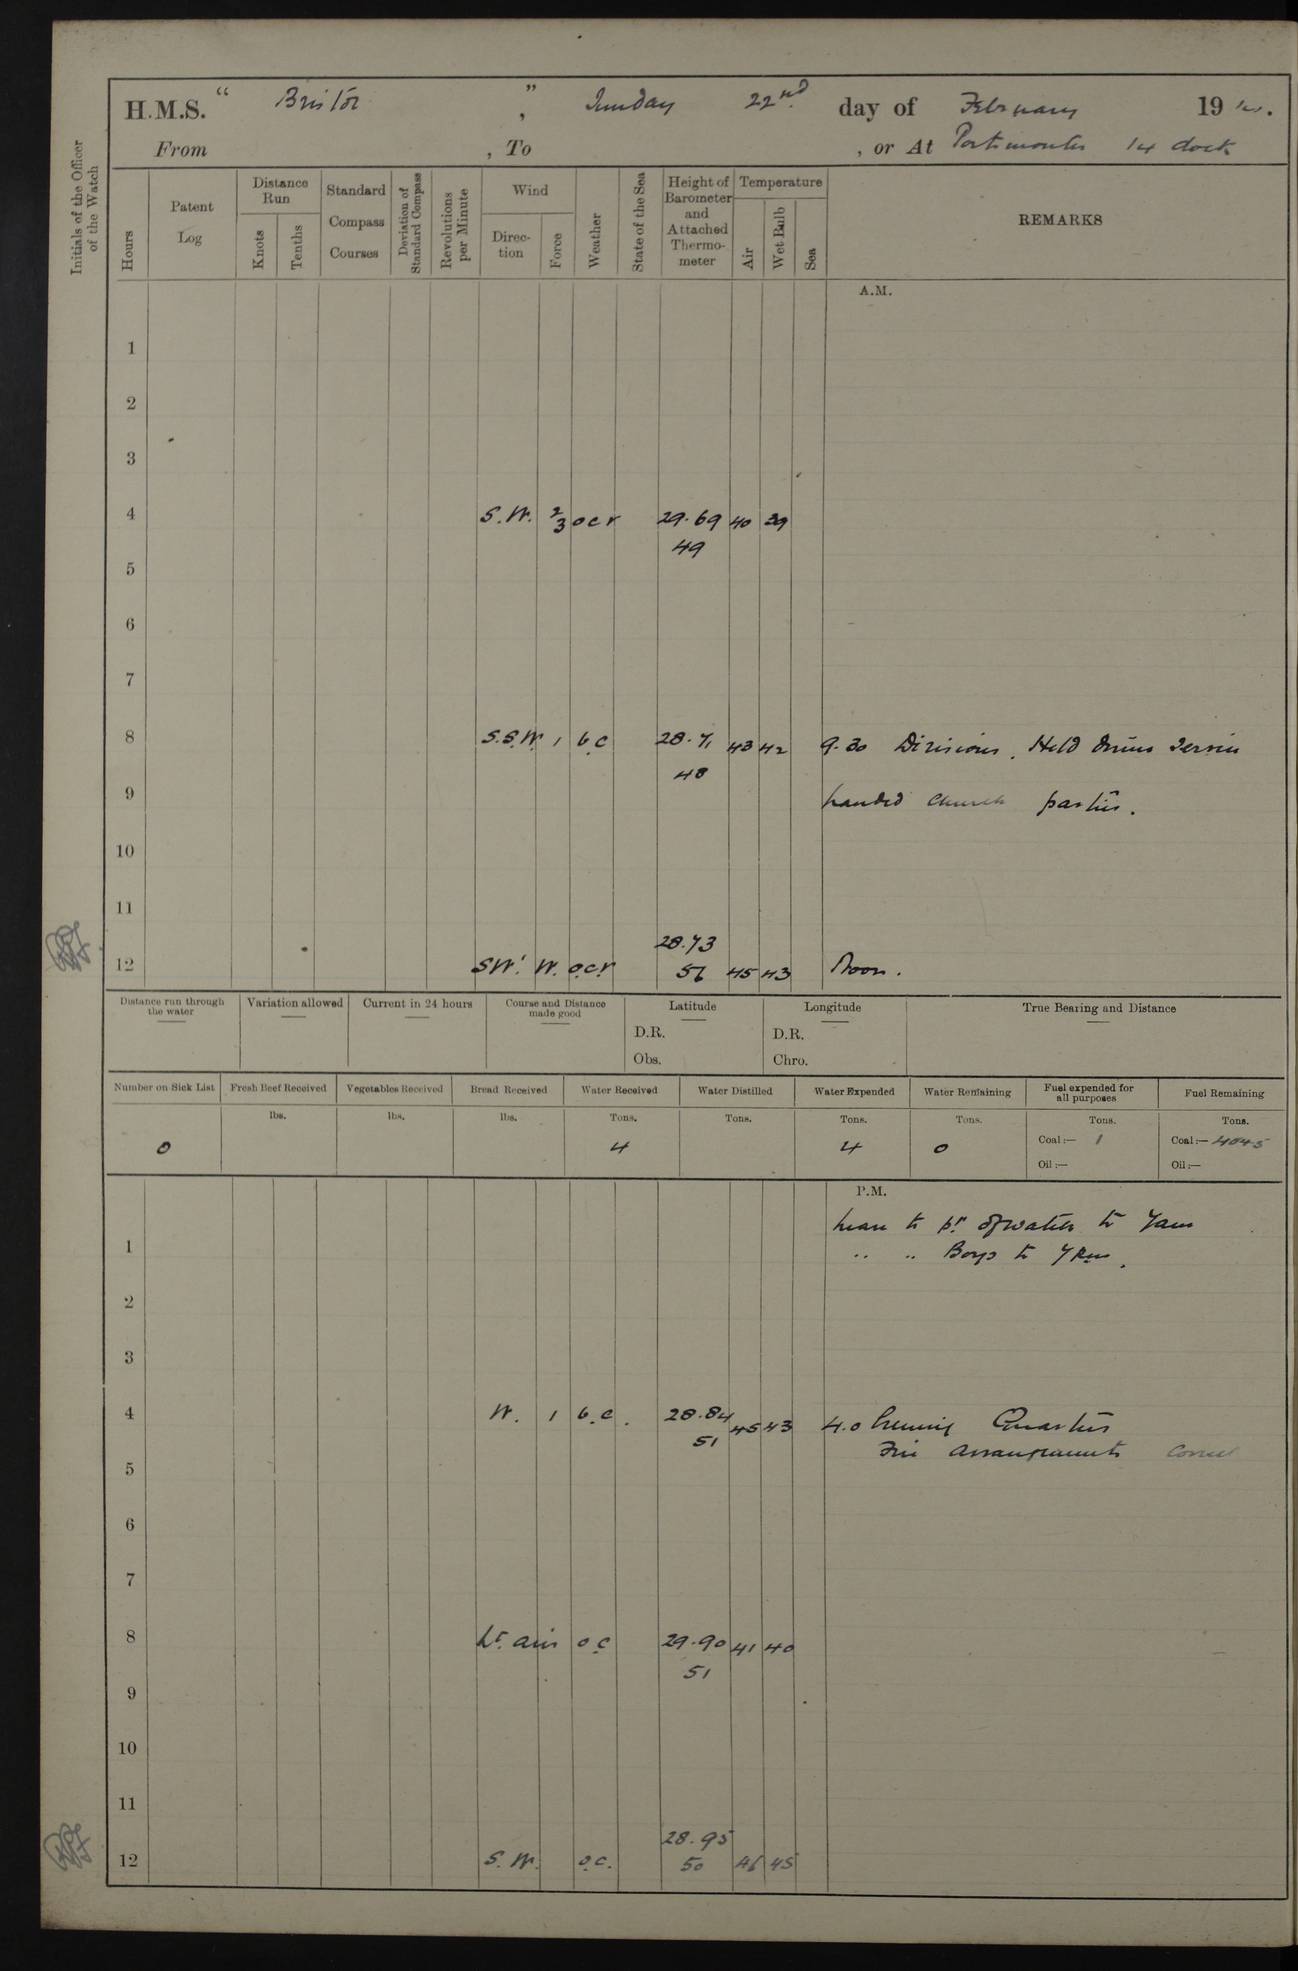 H.M.S. " Bristol ", Sunday 22nd. day of February 1914.
From , To , or At Portsmouth 14 dock
Initials of the Officer of the Watch
Hours
Patent Log
Distance Run
Knots
Tenths
Standard Compass Courses
Deviation of Standard Compass
Revolutions per Minute
Wind
Direction
Force
Weather
State of the Sea
Height of Barometer and Attached Thermometer
Temperature
Air
Wet Bulb
Sea
REMARKS
A.M.
1
2
3
4 S.W. 2/3 ocr 29.69 40 39
49
5
6
7
8 S.S.W. 1 b.c 28.71 43 42 9.30 Divisions. Held Divine Service
48
9 Landed Church parties.
10
11
28.73
12 SW. W. o.c.r 56 45 43 Noon.
Distance run through the water
Variation allowed
Current in 24 hours
Course and Distance made good
Latitude
D.R.
Obs.
Longitude
D.R.
Chro.
True Bearing and Distance
Number on Sick List
Fresh Beef Received
Vegetables Received
Bread Received
Water Received
Water Distilled
Water Expended
Water Remaining
Fuel expended for all purposes
Fuel Remaining
lbs. lbs. lbs. Tons. Tons. Tons. Tons. Tons. Tons.
0 4 4 0 Coal:— 1 Coal:— 4045
Oil:— Oil:—
P.M.
Leave to pt of watch to 7am
1 " " Boys to 7 pm.
2
3
4 W. 1 b.c. 28.84 45 43 4.0 Evening Quarters
51 Fire arrangements correct
5
6
7
8 Lt. airs o.c 29.90 41 40
51
9
10
11
28.95
12 S.W. o.c. 50 46 45